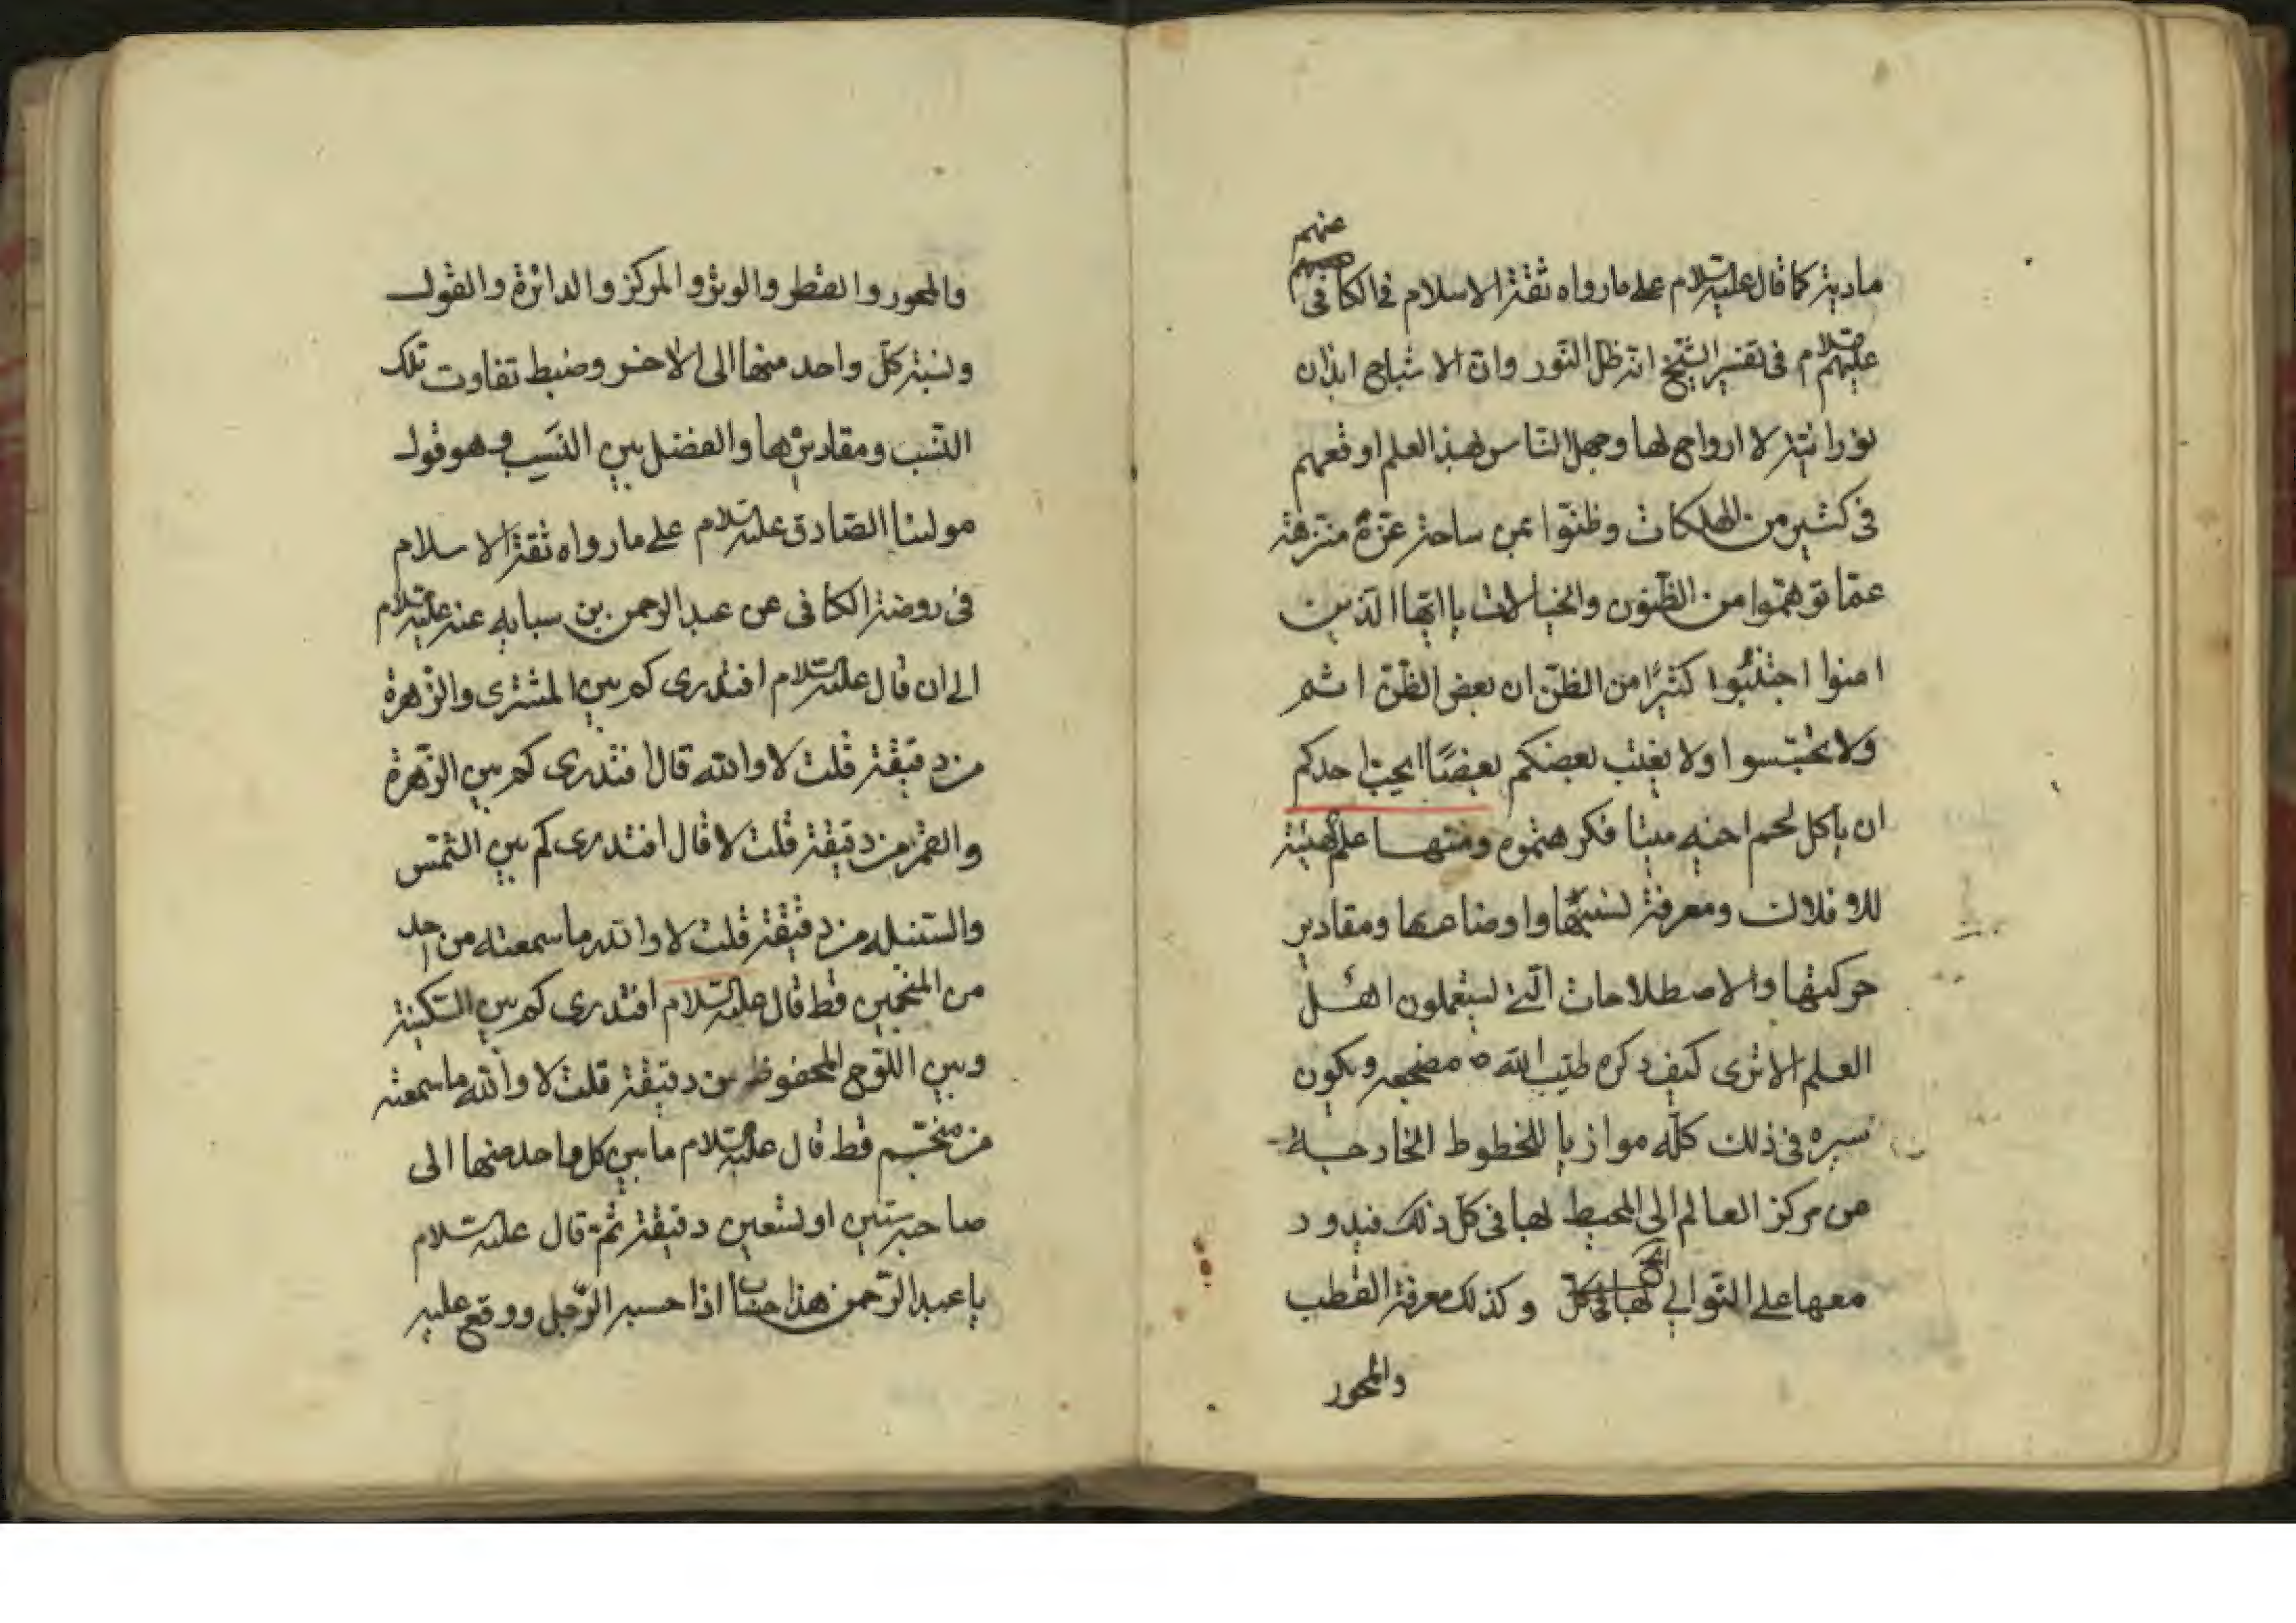 عنهم
مادية كما قال عليه السلام على ما رواه ثقة الاسلام في الكافي
عليهم السلام في تفسير الشبح انه ظل النور وان الاشباح ابدان
نورانية لا ارواح لها وجهل الناس بهذا العلم اوقعهم
في كثير من الهلكات وظنوا بمن ساحة عزه منزهة
عما توهموا من الظنون والخيالات يا ايها الذين
امنوا اجتنبوا كثيرًا من الظن ان بعض الظن اثم
ولا تجسسوا ولا يغتب بعضكم بعضًا ايحب احدكم
ان ياكل لحم اخيه ميتا فكرهتموه ومنها علم الهيئة
للافلاك ومعرفة نسبتها واوضاعها ومقادير
حركتها والاصطلاحات التي يستعملون اهل
العلم الا ترى كيف ذكره طيب الله مضجعه ويكون
سيره في ذلك كله موازيا للخطوط الخارجة
من مركز العالم الى المحيط لها في كل ذلك فيدور
معها على التوالي وكذلك معرفة القطب
والمحور
والمحور والقطر والوتر والمركز والدائرة والقول
ونسبة كل واحد منها الى الاخر وضبط تفاوت تلك
النسب ومقاديرها والفضل بين النسب وهو قول
مولينا الصادق عليه السلام على ما رواه ثقة الاسلام
في روضة الكافي عن عبد الرحمن بن سيابه عنه عليه السلام
الى ان قال عليه السلام افتدرى كم بين المشترى والزهرة
من دقيقة قلت لا والله قال افتدرى كم بين الزهرة
والقمر من دقيقة قلت لا قال افتدرى كم بين الشمس
والسنبله من دقيقة قلت لا والله ما سمعته من احد
من المنجمين قط قال عليه السلام افتدرى كم بين السكينة
وبين اللوح المحفوظ من دقيقة قلت لا والله ما سمعته
من منجم قط قال عليه السلام ما بين كل واحد منها الى
صاحبه ستين او تسعين دقيقة ثم قال عليه السلام
يا عبد الرحمن هذا حساب اذا حسبه الرجل ووقع عليه